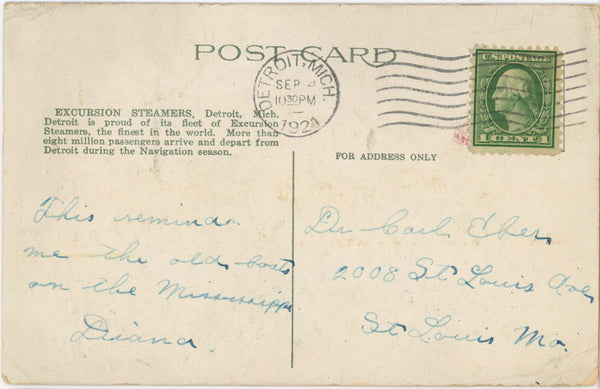 POST CARD
DETROIT, MICH.
SEP
10 30 PM
1921
U.S. POSTAGE
1 CENT 1
EXCURSION STEAMERS, Detroit, Mich.
Detroit is proud of its fleet of Excursion
Steamers, the finest in the world. More than
eight million passengers arrive and depart from
Detroit during the Navigation season.
FOR ADDRESS ONLY
This reminds
me the old boats
on the Mississippi
Diana.
Dr Carl Eber
2008 St Louis Ave
St Louis Mo.